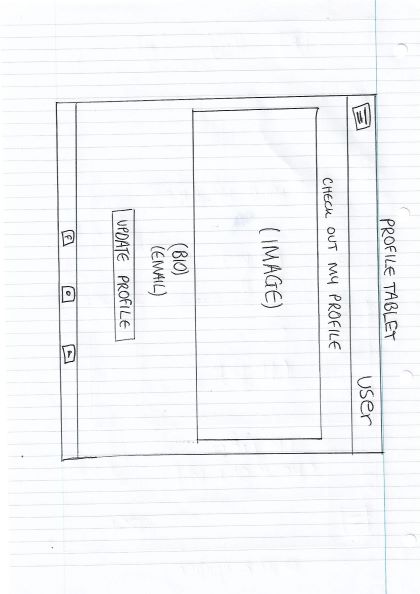 PROFILE TABLET
user
CHECK OUT MY PROFILE
(IMAGE)
(BIO)
(EMAIL)
UPDATE PROFILE
F